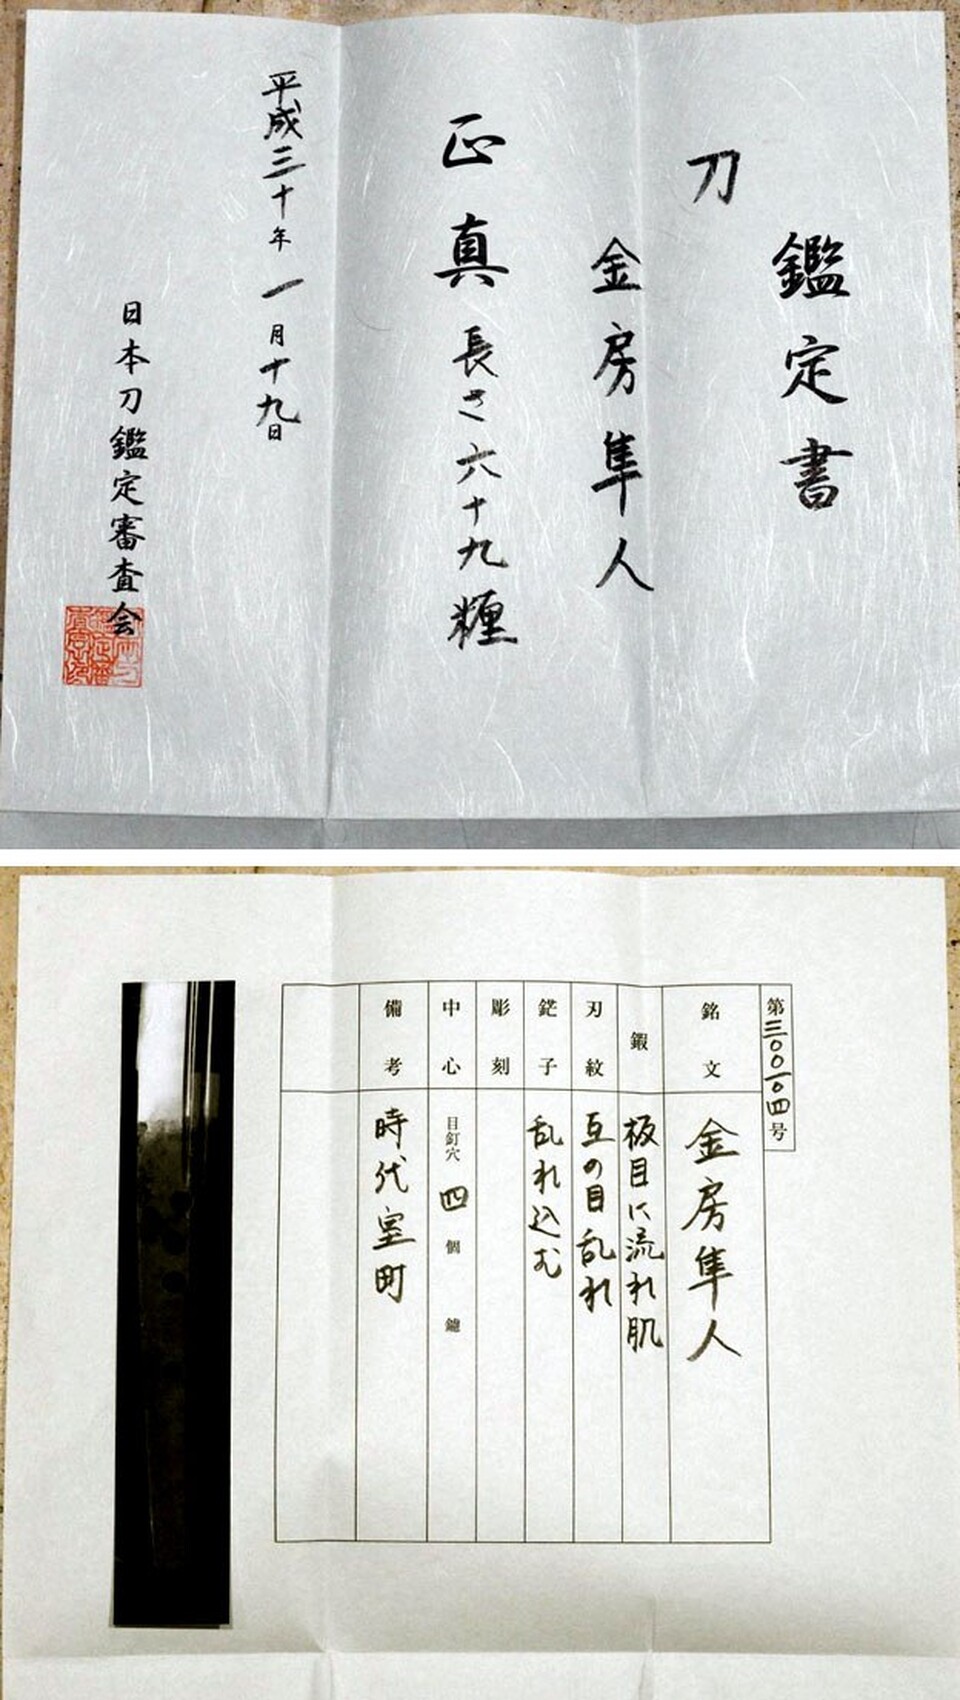 鑑定書
刀
金房隼人
正真
長さ六十九糎
平成三十年一月十九日
日本刀鑑定審査会
第三〇〇一〇四号
銘文
金房隼人
鍜
板目に流れ肌
刃紋
互の目乱れ
鋩子
乱れ込む
彫刻
中心
目釘穴 四 個 鑢
備考
時代室町